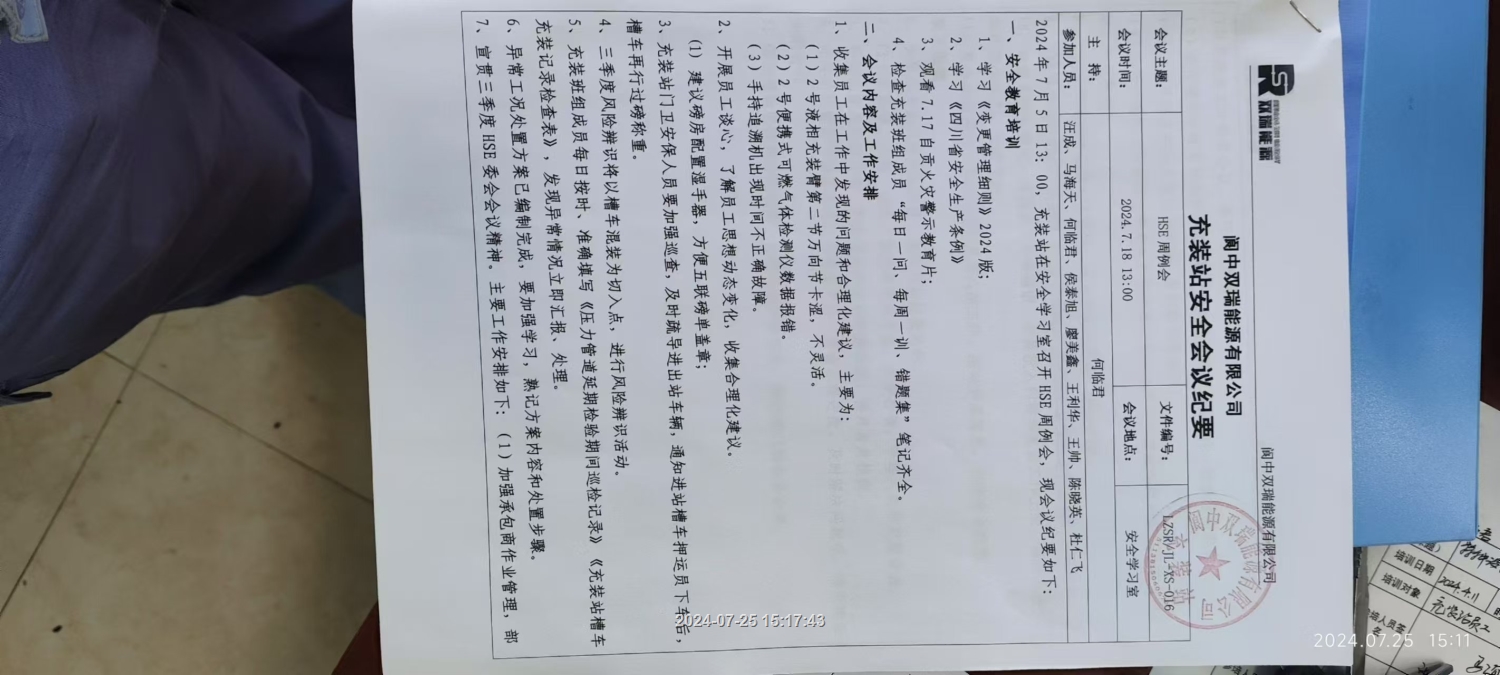 双瑞能源
阆中双瑞能源有限公司
阆中双瑞能源有限公司
充装站安全会议纪要
会议主题： HSE 周例会 文件编号： LZSR/JL-XS-016
会议时间： 2024.7.18 13:00 会议地点： 安全学习室
主 持： 何临君
参加人员： 汪成、马海天、何临君、侯泰旭、廖美鑫、王利华、王帅、陈晓英、杜仁飞
2024 年 7 月 5 日 13：00，充装站在安全学习室召开 HSE 周例会，现会议纪要如下：
一、安全教育培训
1、学习《变更管理细则》2024 版；
2、学习《四川省安全生产条例》
3、观看 7.17 自贡火灾警示教育片；
4、检查充装班组成员“每日一问、每周一训、错题集”笔记齐全。
二、会议内容及工作安排
1、收集员工在工作中发现的问题和合理化建议，主要为：
（1）2 号液相充装臂第二节万向节卡涩，不灵活。
（2）2 号便携式可燃气体检测仪数据报错。
（3）手持追溯机出现时间不正确故障。
2、开展员工谈心，了解员工思想动态变化，收集合理化建议。
（1）建议磅房配置湿手器，方便五联磅单盖章；
3、充装站门卫安保人员要加强巡查，及时疏导进出站车辆，通知进站槽车押运员下车后，
槽车再行过磅称重。
4、三季度风险辨识将以槽车混装为切入点，进行风险辨识活动。
5、充装班组成员每日按时、准确填写《压力管道延期检验期间巡检记录》《充装站槽车
充装记录检查表》，发现异常情况立即汇报、处理。
6、异常工况处置方案已编制完成，要加强学习，熟记方案内容和处置步骤。
7、宣贯三季度 HSE 委会会议精神。主要工作安排如下：（1）加强承包商作业管理，部
阆中双瑞能源有限公司
充装站
培训日期 2024.4.11
培训对象
2024-07-25 15:17:43
2024.07.25 15:11